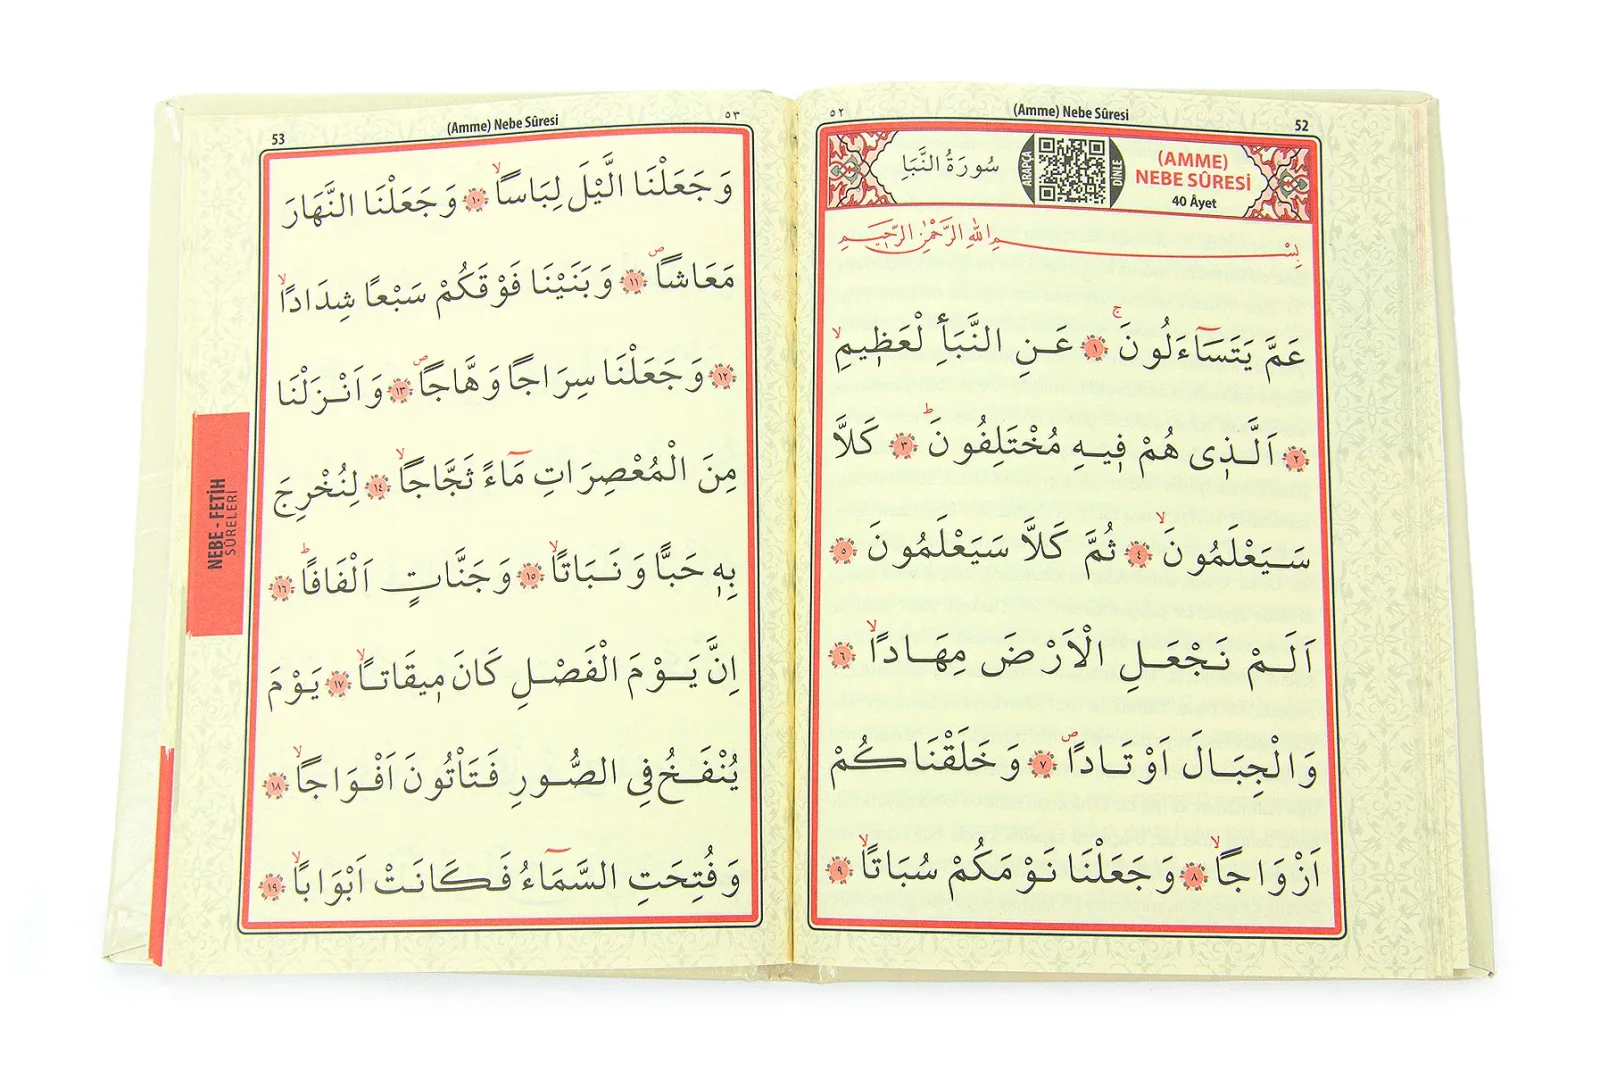 ٥٢
(Amme) Nebe Sûresi
52
سُورَةُ النَّبَأِ
ARAPÇA
DİNLE
(AMME)
NEBE SÛRESİ
40 Âyet
بِسْمِ اللهِ الرَّحْمٰنِ الرَّحِيمِ
عَمَّ يَتَسَآءَلُونَۚ ﴿١﴾ عَنِ النَّبَأِ لْعَظِيمِۙ
﴿٢﴾ اَلَّذِى هُمْ فِيهِ مُخْتَلِفُونَۜ ﴿٣﴾ كَلاَّ
سَيَعْلَمُونَۙ ﴿٤﴾ ثُمَّ كَلاَّ سَيَعْلَمُونَ ﴿٥﴾
اَلَمْ نَجْعَلِ الْاَرْضَ مِهَادًاۙ ﴿٦﴾
وَالْجِبَالَ اَوْتَادًاۖ ﴿٧﴾ وَخَلَقْنَاكُمْ
اَزْوَاجًاۙ ﴿٨﴾ وَجَعَلْنَا نَوْمَكُمْ سُبَاتًاۙ ﴿٩﴾
53
(Amme) Nebe Sûresi
٥٣
وَجَعَلْنَا الَّيْلَ لِبَاسًاۙ ﴿١٠﴾ وَجَعَلْنَا النَّهَارَ
مَعَاشًاۖ ﴿١١﴾ وَبَنَيْنَا فَوْقَكُمْ سَبْعًا شِدَادًاۙ
﴿١٢﴾ وَجَعَلْنَا سِرَاجًا وَهَّاجًاۖ ﴿١٣﴾ وَاَنْزَلْنَا
مِنَ الْمُعْصِرَاتِ مَآءً ثَجَّاجًاۙ ﴿١٤﴾ لِنُخْرِجَ
بِهِ حَبًّا وَنَبَاتًاۙ ﴿١٥﴾ وَجَنَّاتٍ اَلْفَافًاۜ ﴿١٦﴾
اِنَّ يَوْمَ الْفَصْلِ كَانَ مِيقَاتًاۙ ﴿١٧﴾ يَوْمَ
يُنْفَخُ فِى الصُّورِ فَتَأْتُونَ اَفْوَاجًاۙ ﴿١٨﴾
وَفُتِحَتِ السَّمَآءُ فَكَانَتْ اَبْوَابًاۙ ﴿١٩﴾
NEBE - FETİH
SÛRELERİ